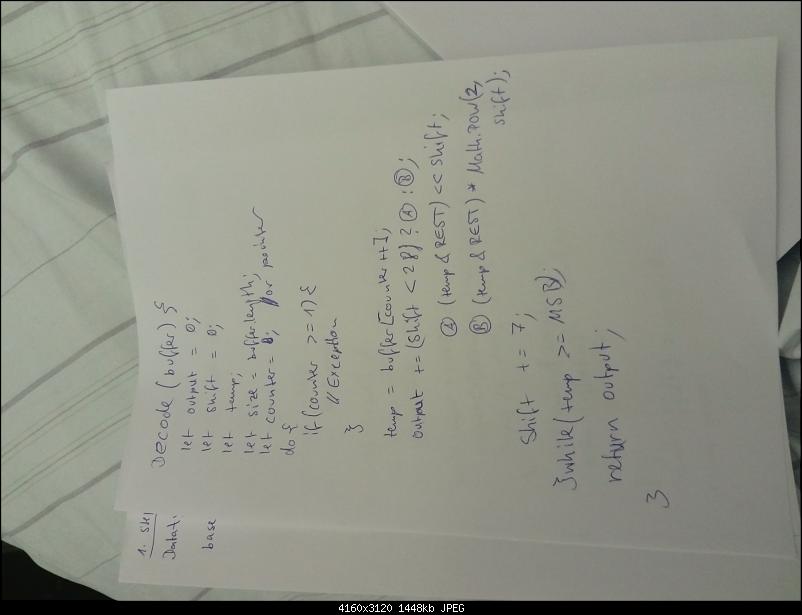 Decode (buffer) {
let output = 0;
let shift = 0;
let temp;
let size = buffer.length;
let counter = 0; // or pointer
do {
if (counter >= 1) {
// Exception
}
temp = buffer[counter++];
output += (shift < 28) ? Ⓐ : Ⓑ;
Ⓐ (temp & REST) << shift;
Ⓑ (temp & REST) * Math.pow(2,
shift);
shift += 7;
} while (temp >= MSB);
return output;
}
1.
Datat
base
4160x3120 1448kb JPEG